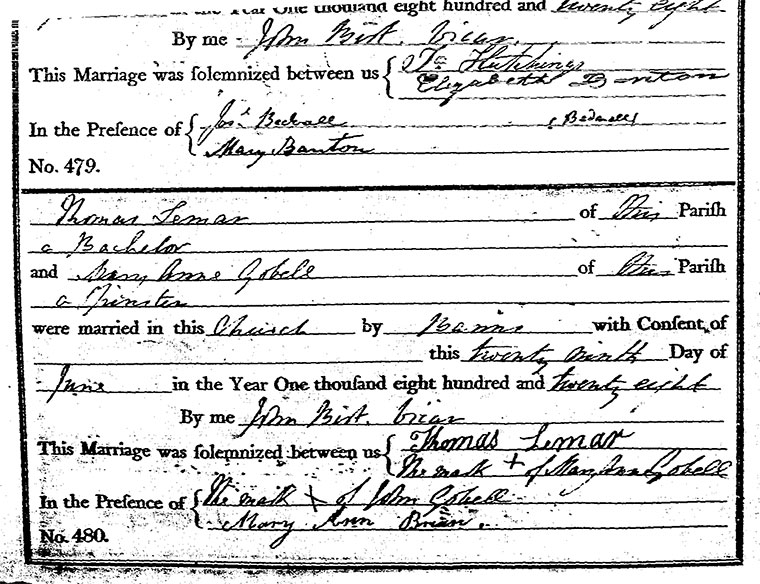 in the Year One thousand eight hundred and twenty eight
By me John Bist. Vicar.
This Marriage was solemnized between us { Ja Hutchings
Elizabeth Banton
In the Presence of { Jos. Bednall (Bednall)
Mary Banton
No. 479.
Thomas Lemar of this Parish
a Bachelor
and Mary Anne Gobell of this Parish
a Spinster
were married in this Church by Banns with Consent of
this twenty ninth Day of
June in the Year One thousand eight hundred and twenty eight
By me John Bist. Vicar
This Marriage was solemnized between us { Thomas Lemar
The mark + of Mary Anne Gobell
In the Presence of { The mark X of John Gobell
Mary Ann Brian.
No. 480.